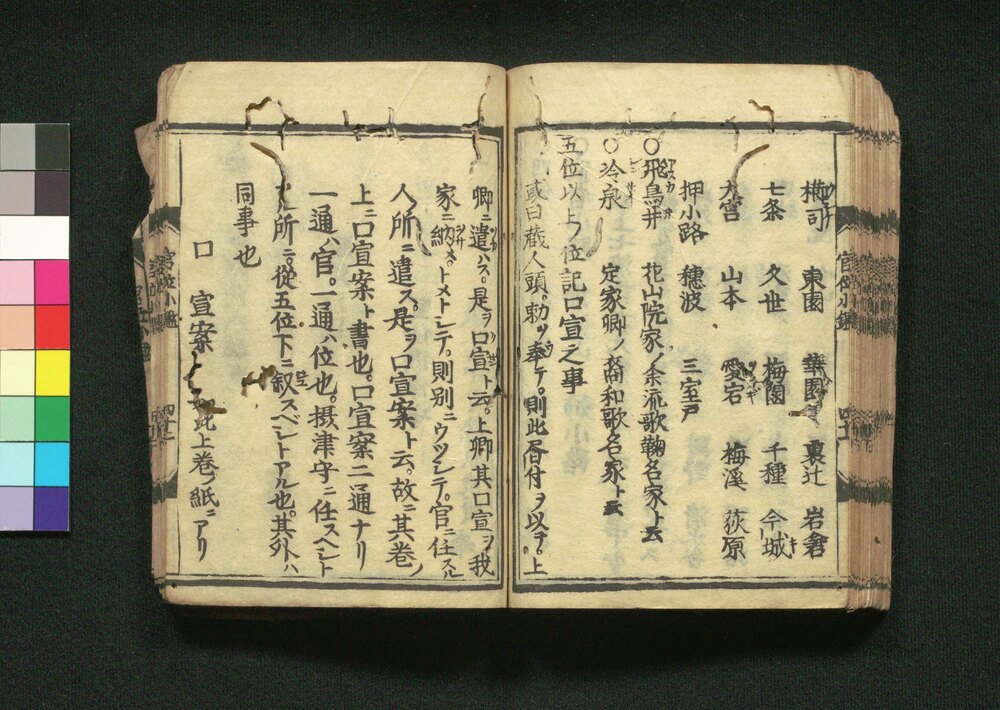 櫛司 東園 華園 裏辻 岩倉
七条 久世 梅園 千種 今城
大宮 山本 愛宕 梅溪 萩原
押小路 穗波 三室戸
○飛鳥井 花山院家ノ余流歌鞠名家ト云
○冷泉 定家卿ノ裔和歌名家ト云
五位以上ノ位記口宣之事
或曰蔵人頭。勅ヲ奉テ。則此ヲ以テ。上
卿ニ遣ハス。是ヲ口宣ト云。上卿其口宣ヲ我
家ニ納メトメトシテ。則別ニウツシテ。官ニ任スル
人ノ所ニ遣ス。是ヲ口宣案ト云。故ニ其巻ノ
上ニ口宣案ト書也。口宣案二通ナリ
一通ハ官。一通ハ位也。摂津守ニ任スヘシト
所ニ。從五位下ニ叙スヘシトアル也。其外ハ
同事也
口 宣案ト此上巻ノ紙ニアリ
官位小鑑
四十二